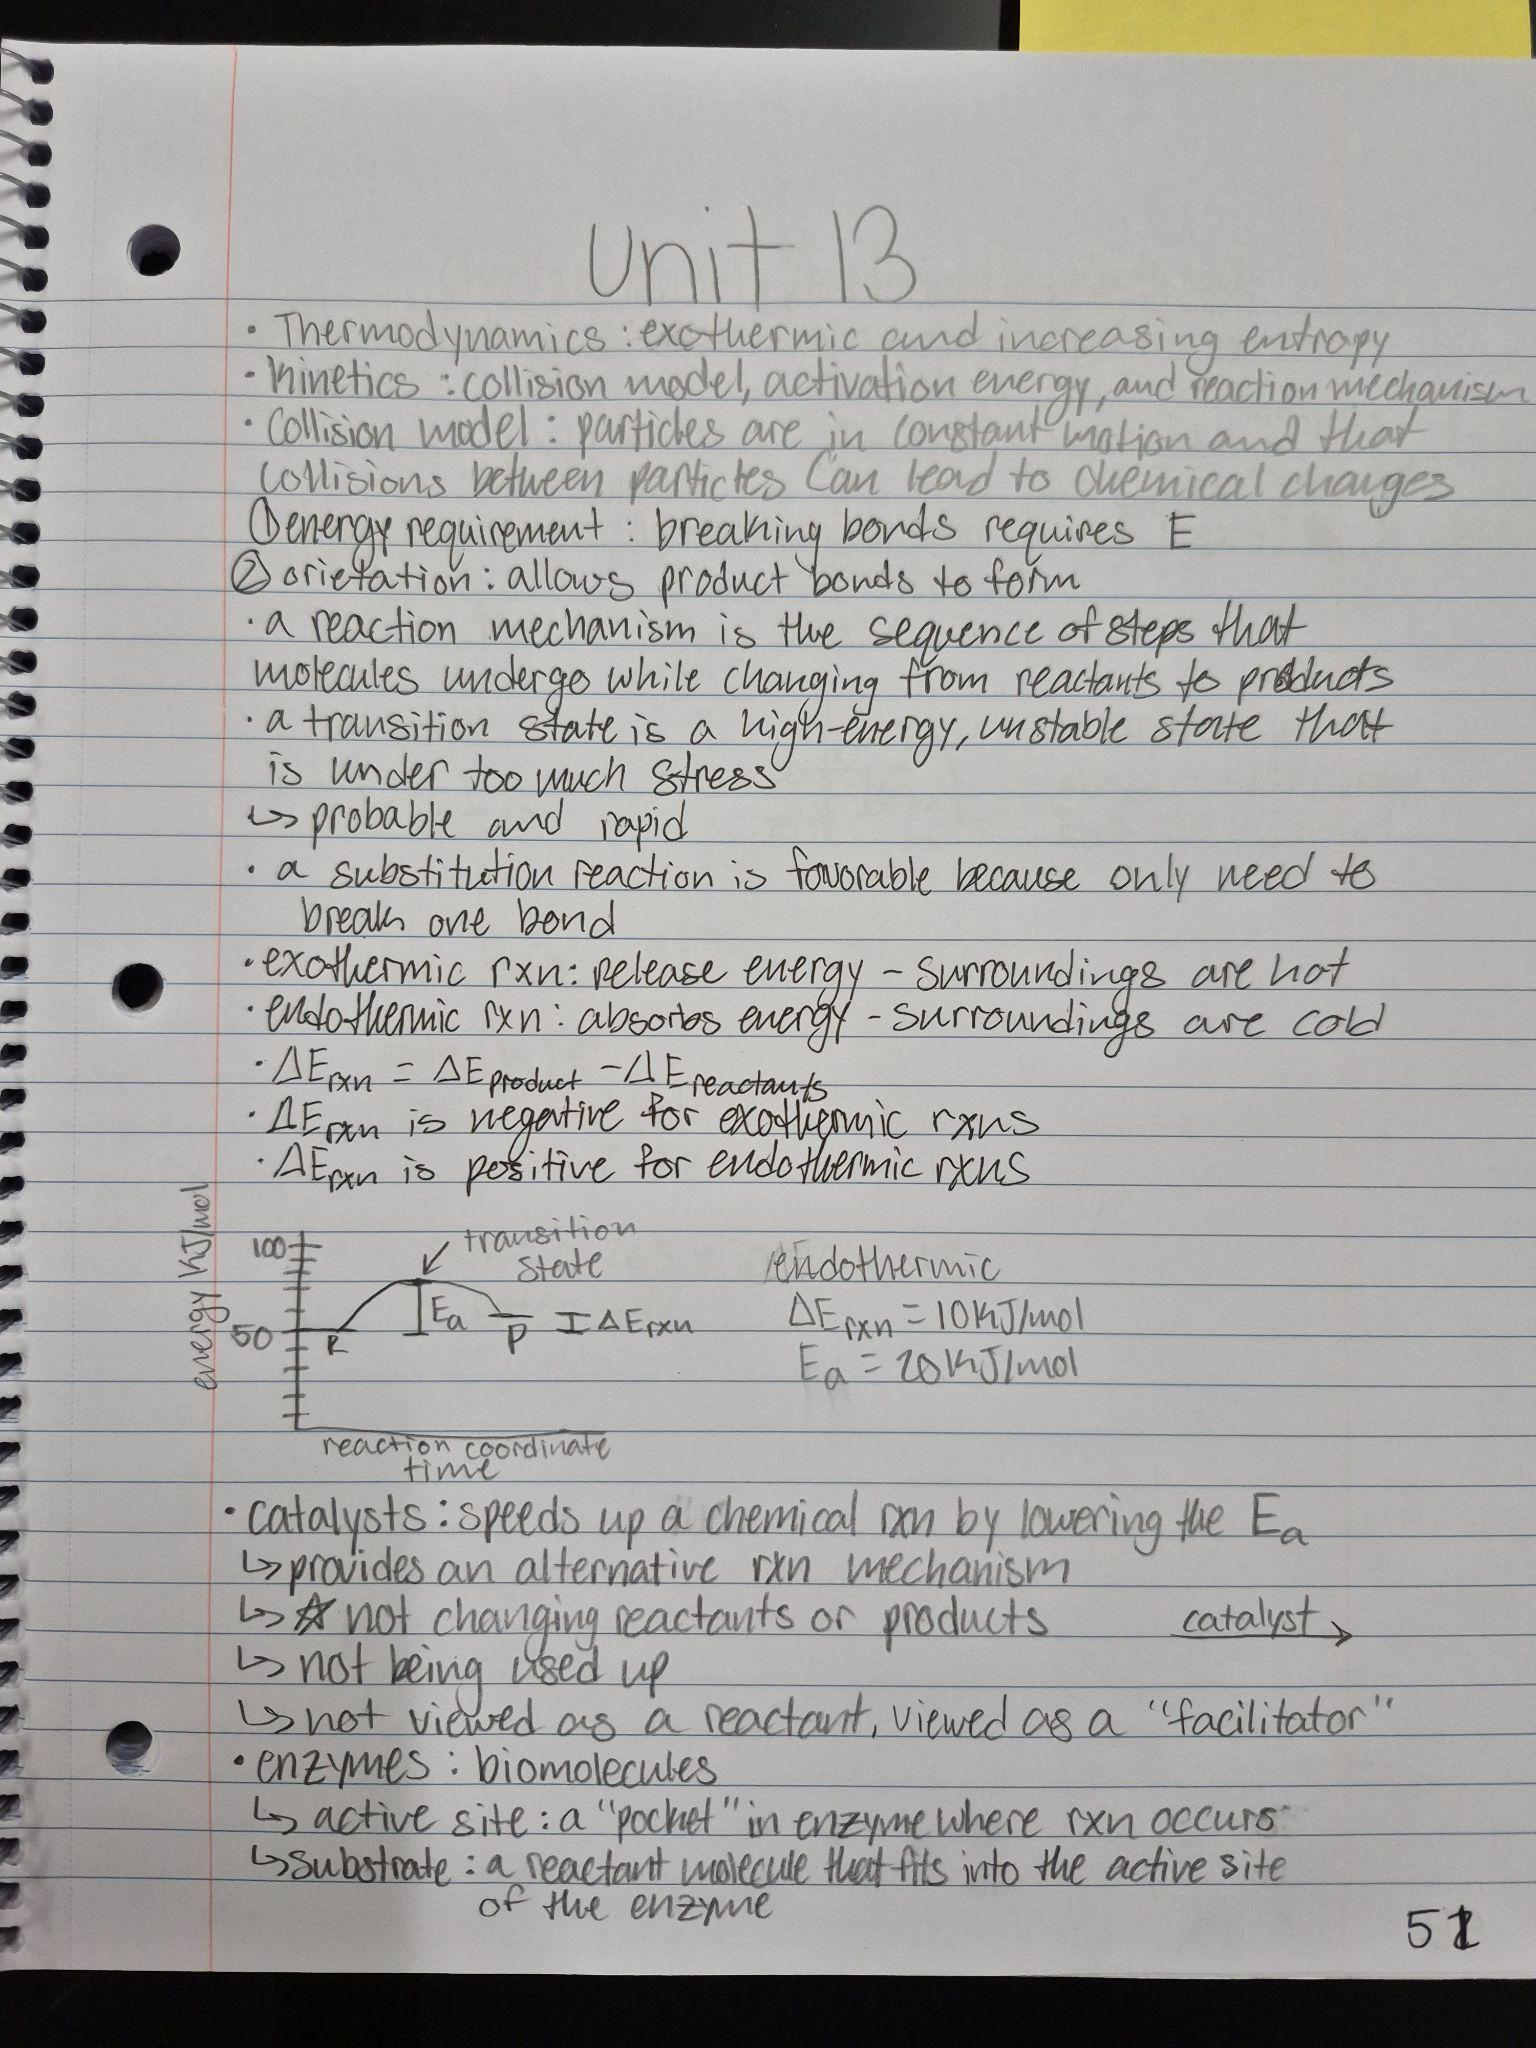 Unit 13
• Thermodynamics: exothermic and increasing entropy
• Kinetics: collision model, activation energy, and reaction mechanism
• Collision model: particles are in constant motion and that
collisions between particles can lead to chemical changes
① energy requirement: breaking bonds requires E
② orietation: allows product bonds to form
• a reaction mechanism is the sequence of steps that
molecules undergo while changing from reactants to products
• a transition state is a high-energy, unstable state that
is under too much stress
↳ probable and rapid
• a substitution reaction is favorable because only need to
break one bond
• exothermic rxn: release energy - surroundings are hot
• endothermic rxn: absorbs energy - surroundings are cold
• ΔErxn = ΔEproduct - ΔEreactants
• ΔErxn is negative for exothermic rxns
• ΔErxn is positive for endothermic rxns
energy KJ/mol
100
50
transition
state
R
Ea
P
ΔErxn
reaction coordinate
time
endothermic
ΔErxn = 10KJ/mol
Ea = 20KJ/mol
• catalysts: speeds up a chemical rxn by lowering the Ea
↳ provides an alternative rxn mechanism
↳ ☆ not changing reactants or products
catalyst →
↳ not being used up
↳ not viewed as a reactant, viewed as a "facilitator"
• enzymes: biomolecules
↳ active site: a "pocket" in enzyme where rxn occurs
↳ substrate: a reactant molecule that fits into the active site
of the enzyme